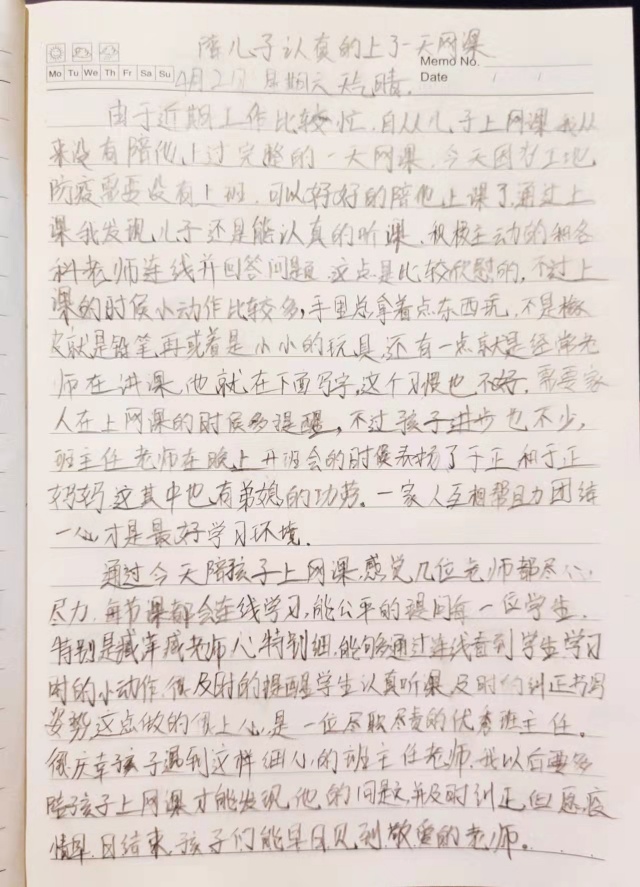 陪儿子认真的上了一天网课
Memo No.
Mo Tu We Th Fr Sa Su
Date / /
4月2日 星期六 天气晴.
由于近期工作比较忙,自从儿子上网课我从
来没有陪他上过完整的一天网课,今天因为工地
防疫需要没有上班,可以好好的陪他上课了,通过上
课我发现儿子还是能认真的听课,积极主动的和各
科老师连线并回答问题 这点是比较欣慰的,不过上
课的时候小动作比较多,手里总拿着点东西玩,不是橡
皮就是铅笔,再或者是小小的玩具,还有一点就是经常老
师在讲课,他就在下面写字,这个习惯也不好,需要家
人在上网课的时候多提醒,不过孩子进步也不少,
班主任老师在晚上开班会的时候表扬了于正和于正
妈妈,这其中也有弟媳的功劳。一家人互相帮助力团结
一心才是最好学习环境.
通过今天陪孩子上网课,感觉几位老师都尽心
尽力,每节课都会连线学习,能公平的提问每一位学生,
特别是臧老师心特别细,能够通过连线看到学生学习
时的小动作,很及时的提醒学生认真听课,及时的纠正书写
姿势这点做的很上心,是一位尽职尽责的优秀班主任。
很庆幸孩子遇到这样细心的班主任老师,我以后要多
陪孩子上网课才能发现他的问题,并及时纠正,但愿疫
情早日结束,孩子们能早日见到敬爱的老师。.....